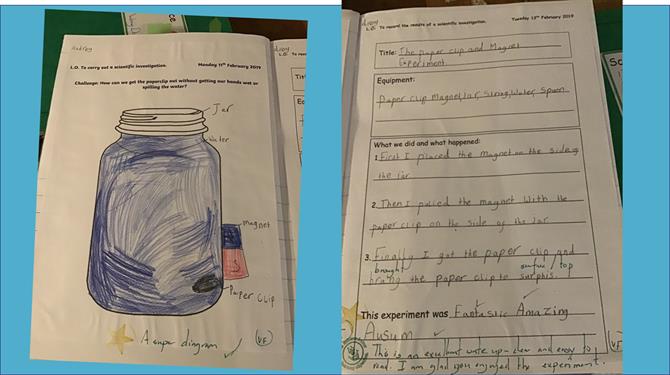 Audrey
L.O. To carry out a scientific investigation. Monday 11th February 2019
Challenge: How can we get the paperclip out without getting our hands wet or
spilling the water?
Jar
Water
Magnet
Paper Clip
A super diagram ✓ VF
L.O. To record the results of a scientific investigation. Tuesday 12th February 2019
Title: The paper clip and Magnet
Experiment
Equipment:
Paper clip Magnet, Jar, String, Water, Spoon
What we did and what happened:
1. First I placed the magnet on the side of
the jar.
2. Then I pulled the magnet with the
paper clip on the side of the jar
3. Finally I got the paper clip and
brought surface / top
bring the paper clip to surphis.
This experiment was Fantastic Amazing
Ausum
This is an excellent write up - clear and easy to
read. I am glad you enjoyed the experiment. VF